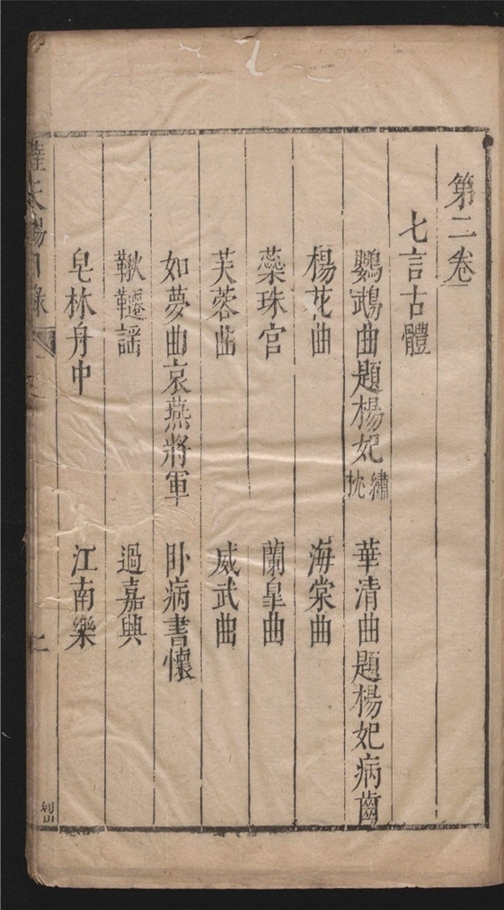 第二卷
七言古體
鸚鵡曲題楊妃繡枕 華清曲題楊妃病齒
楊花曲 海棠曲
蘂珠宮 蘭皐曲
芙蓉曲 威武曲
如夢曲哀燕將軍 卧病書懷
鞦韆謡 過嘉興
皂林舟中 江南樂